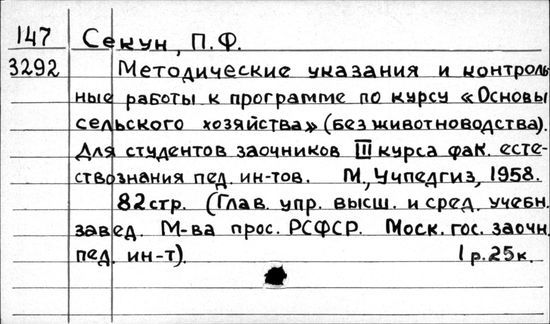 147 Секун, П.Ф.
3292 Методические указания и контроль
ные работы к программе по курсу «Основы
сельского хозяйства» (без животноводства).
Для студентов заочников III курса фак. есте-
ствознания пед. ин-тов. М., Учпедгиз, 1958.
82 стр. (Глав. упр. высш. и сред. учебн.
завед. М-ва прос. РСФСР. Моск. гос. заочн.
пед. ин-т). 1 р. 25 к.